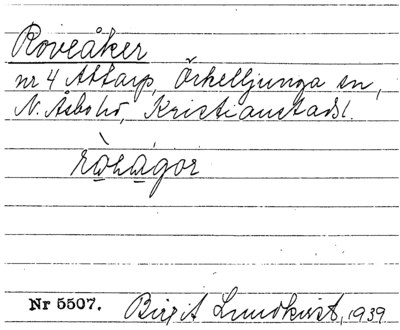 Roveåker
nr 4 Attarp, Örkelljunga sn,
N. Åsbo hd, Kristianstads l.
Nr 5507. Birgit Lundkvist, 1939